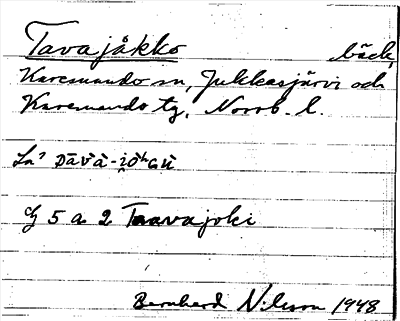 Tavajåkko bäck,
Karesuando sn, Jukkasjärvi och
Karesuando tg, Norrb. l.
5 a 2 Taavajoki
Bernhard Nilsson 1948